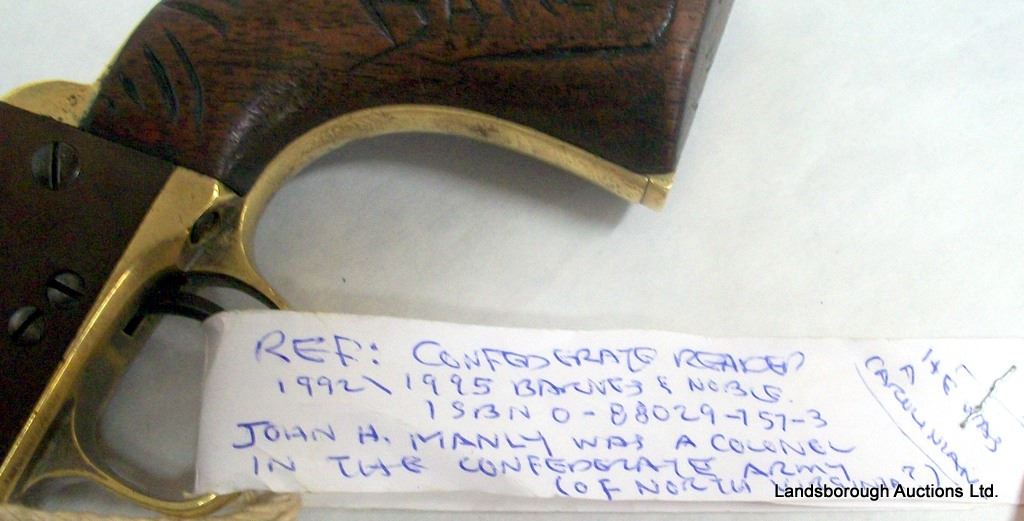 REF: CONFEDERATE READER
1992 \ 1995 BARNES & NOBLE.
ISBN 0-88029-757-3
JOHN H. MANLY WAS A COLONEL
IN THE CONFEDERATE ARMY
(OF NORTH VIRGINIA?)
HE WAS
A
CAROLINIAN
Landsborough Auctions Ltd.